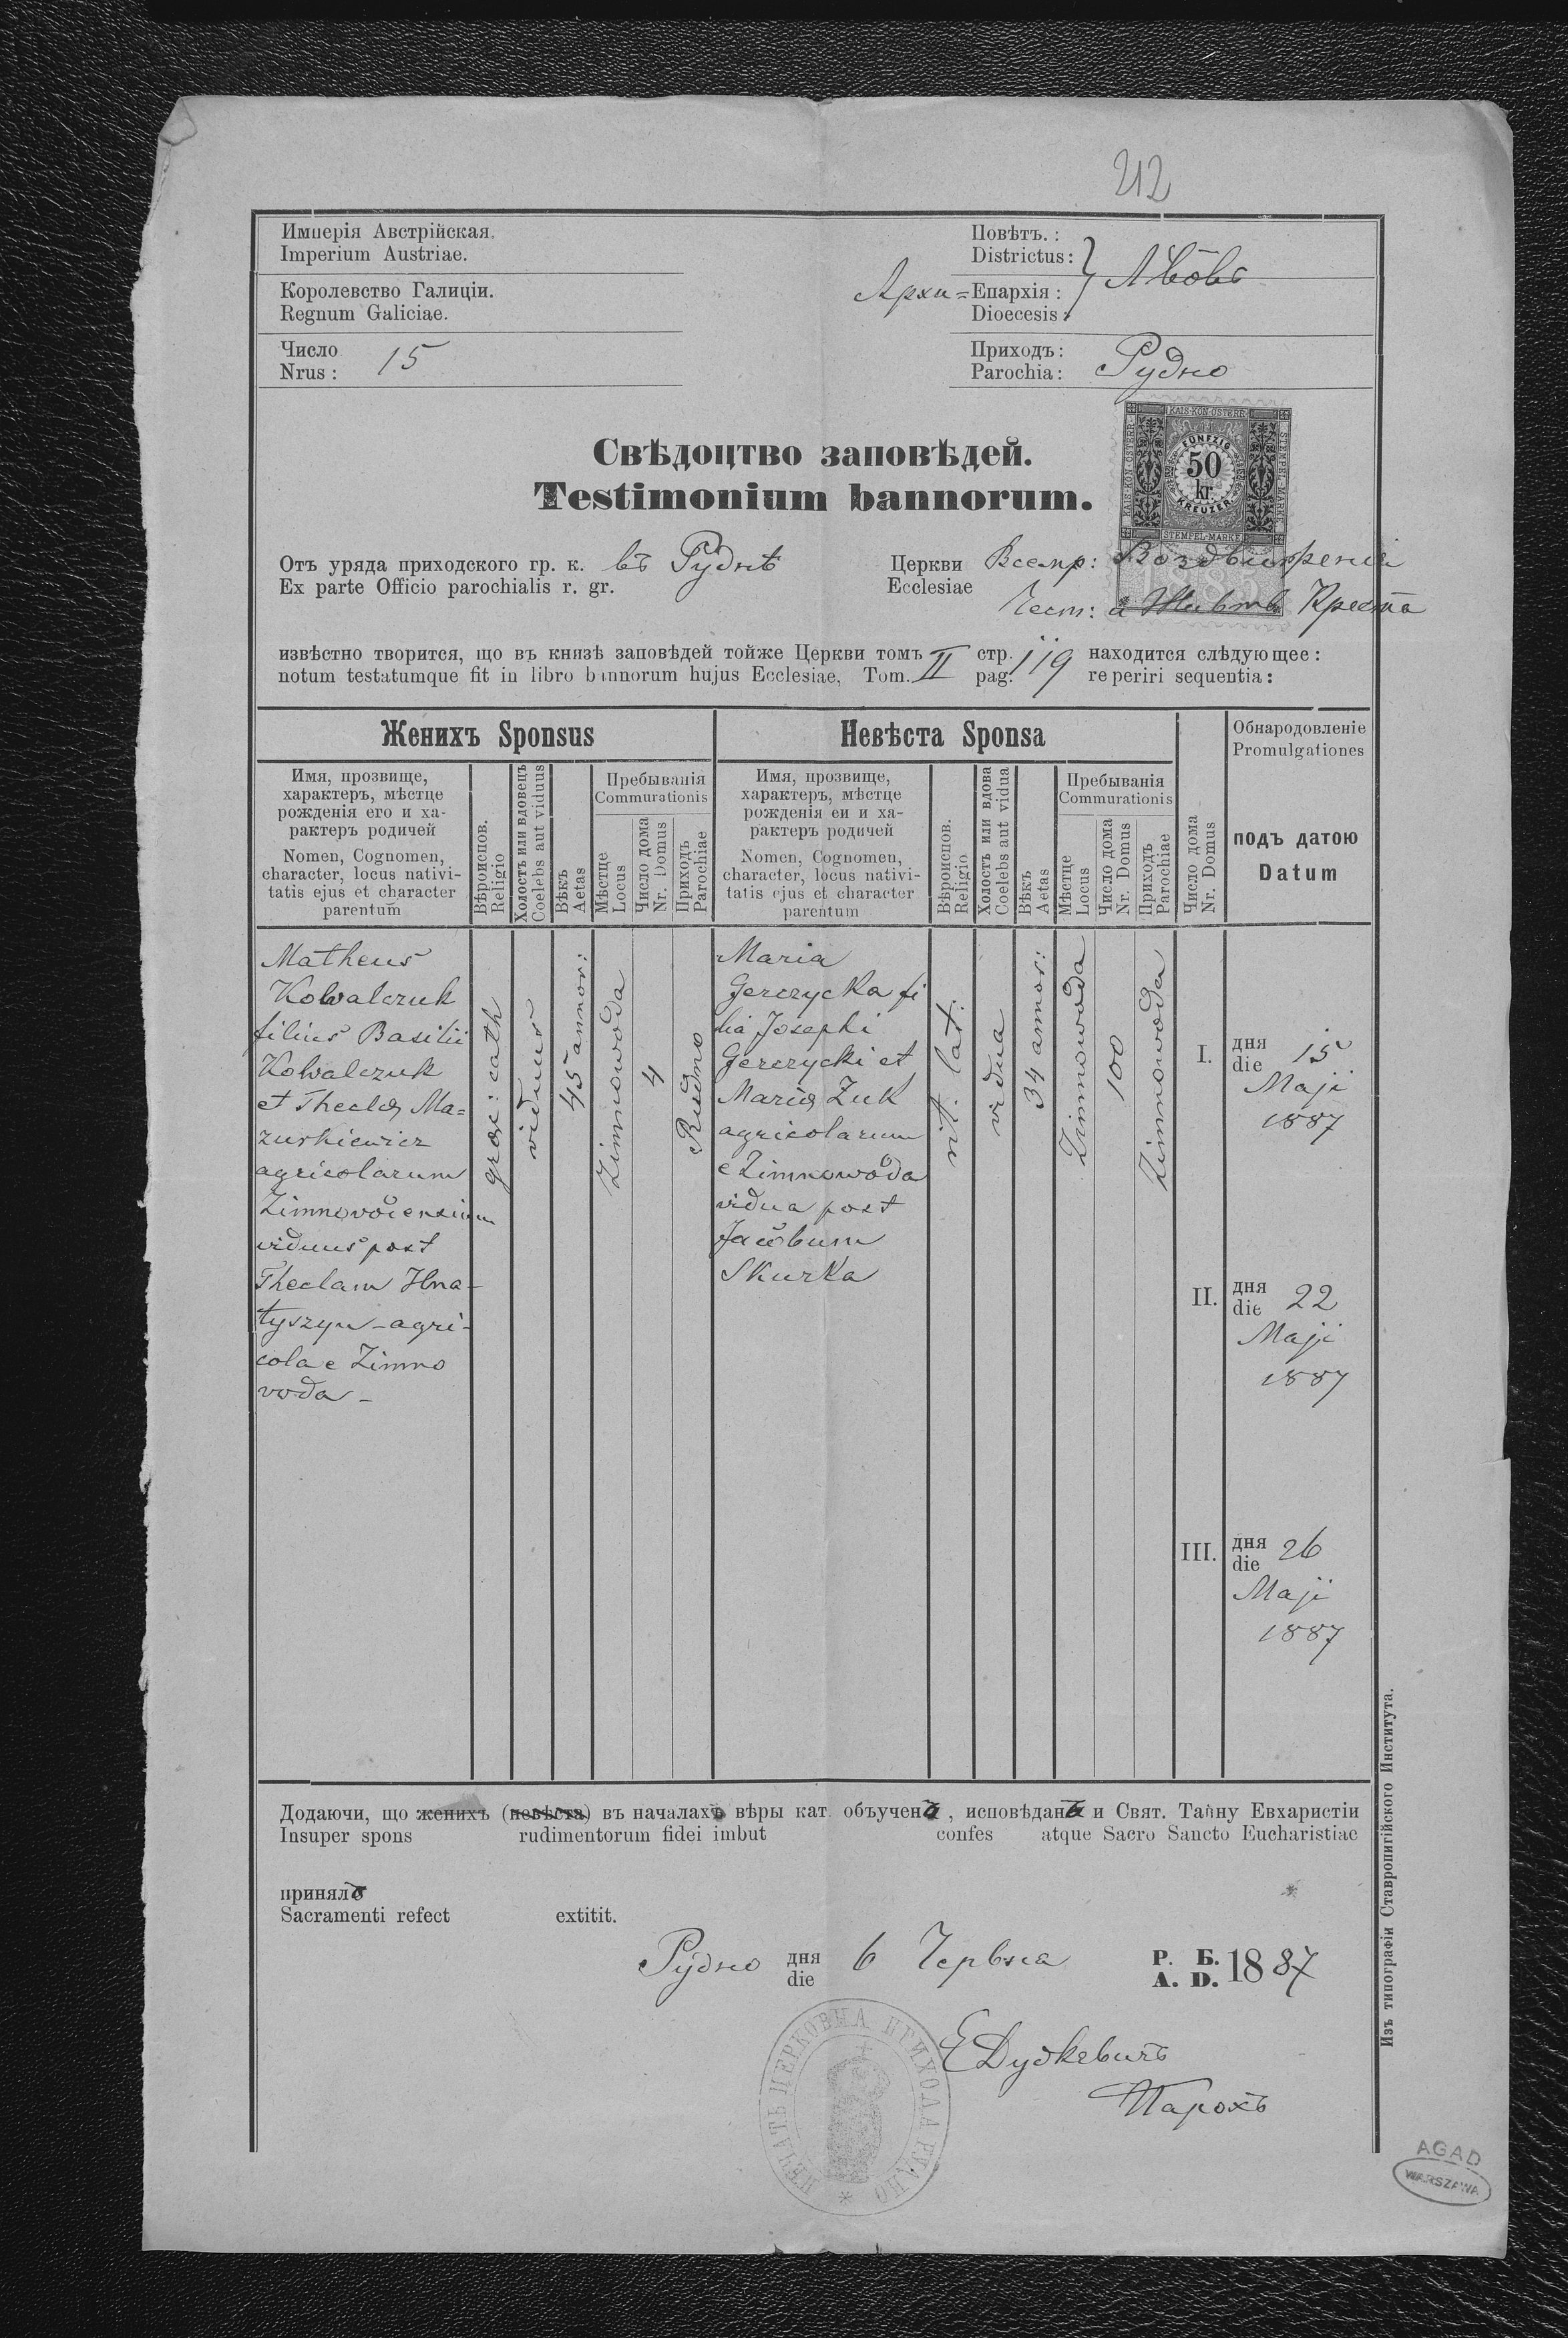 212
Имперія Австрійская.
Imperium Austriae.
Королевство Галиціи.
Regnum Galiciae.
Число
Nrus: 15
Повѣтъ.:
Districtus:
Львôвъ
Архи=Епархія:
Dioecesis:
Приходъ:
Parochia: Рудно
KAIS·KÖN·ÖSTERR·
KAIS·KÖN·ÖSTERR·
STEMPEL-MARKE
FÜNFZIG
50
kr.
KREUZER
STEMPEL-MARKE
1885
Свѣдоцтво заповѣдей.
Testimonium bannorum.
Отъ уряда приходского гр. к. въ Руднѣ Церкви Всемр: Воздвиженія
Ex parte Officio parochialis r. gr. Ecclesiae Чест: и Животв Креста
извѣстно творится, що въ князѣ заповѣдей тойже Церкви томъ II стр. 119 находится слѣдующее:
notum testatumque fit in libro bannorum hujus Ecclesiae, Tom. pag. reperiri sequentia:
Женихъ Sponsus
Невѣста Sponsa
Обнародовленіе
Promulgationes
Имя, прозвище,
характеръ, мѣстце
рожденія его и ха-
рактеръ родичей
Nomen, Cognomen,
character, locus nativi-
tatis ejus et character
parentum
Вѣроиспов.
Religio
Холостъ или вдовецъ
Coelebs aut viduus
Вѣкъ
Aetas
Пребыванія
Commurationis
Мѣстце
Locus
Число дома
Nr. Domus
Приходъ
Parochiae
Имя, прозвище,
характеръ, мѣстце
рожденія еи и ха-
рактеръ родичей
Nomen, Cognomen,
character, locus nativi-
tatis ejus et character
parentum
Вѣроиспов.
Religio
Холостъ или вдова
Coelebs aut vidua
Вѣкъ
Aetas
Пребыванія
Commurationis
Мѣстце
Locus
Число дома
Nr. Domus
Приходъ
Parochiae
Число дома
Nr. Domus
подъ датою
Datum
Matheus
Kowalczuk
filius Basilii
Kowalczuk
et Theclæ Ma=
zurkiewicz
agricolarum
Zimnovodensium
viduus post
Theclam Hna-
tyszyn - agri-
cola e Zimno
voda -
græc: cath
viduus
45 annor:
Zimnowoda
4
Rudno
Maria
Gerzycka fi
lia Josephi
Gerzycki et
Mariæ Zuk
agricolarum
e Zimnowoda
vidua post
Jacobum
Skurka
rit. lat.
vidua
34 annor:
Zimnowoda
100
Zimnowoda
I. дня
die 15
Maji
1887
II. дня
die 22
Maji
1887
III. дня
die 26
Maji
1887
Додаючи, що женихъ (невѣста) въ началахъ вѣры кат. объучена, исповѣдана и Свят. Тайну Евхаристіи
Insuper spons rudimentorum fidei imbut confes atque Sacro Sancto Eucharistiae
принялъ
Sacramenti refect extitit.
Рудно дня 6 Червня Р. Б.
die A. D. 1887
ЕДудкевичъ
Парохъ
ПЕЧАТЬ ЦЕРКОВНА ПРИХОДА РУДНО
Изъ типографіи Ставропигійского Института.
AGAD
WARSZAWA